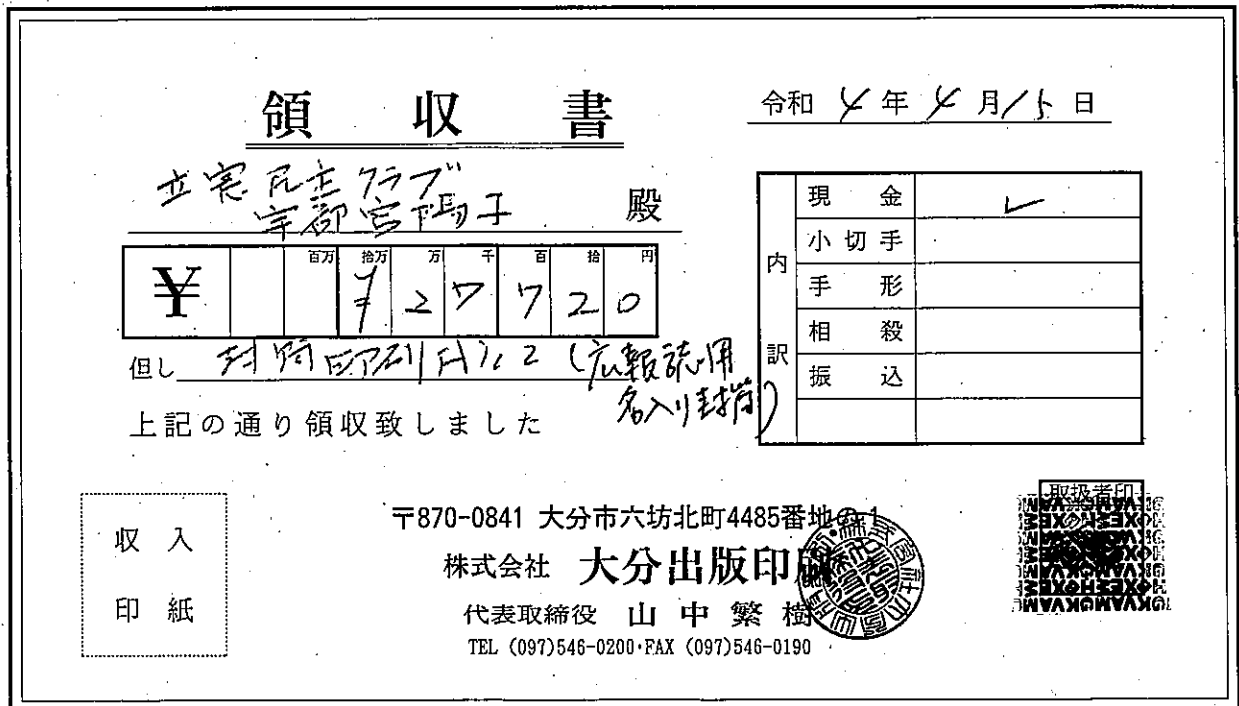 領収書
令和 4 年 4 月 15 日
立憲民主クラブ
宇都宮陽子 殿
百万 拾万 万 千 百 拾 円
¥ ¥ 2 7 7 2 0
但し 封筒印刷代 (広報誌用
名入り封筒)
上記の通り領収致しました
内訳
現金 ✓
小切手
手形
相殺
振込
収入
印紙
〒870-0841 大分市六坊北町4485番地の1
株式会社 大分出版印刷
代表取締役 山中繁樹
TEL (097)546-0200・FAX (097)546-0190
取扱者印